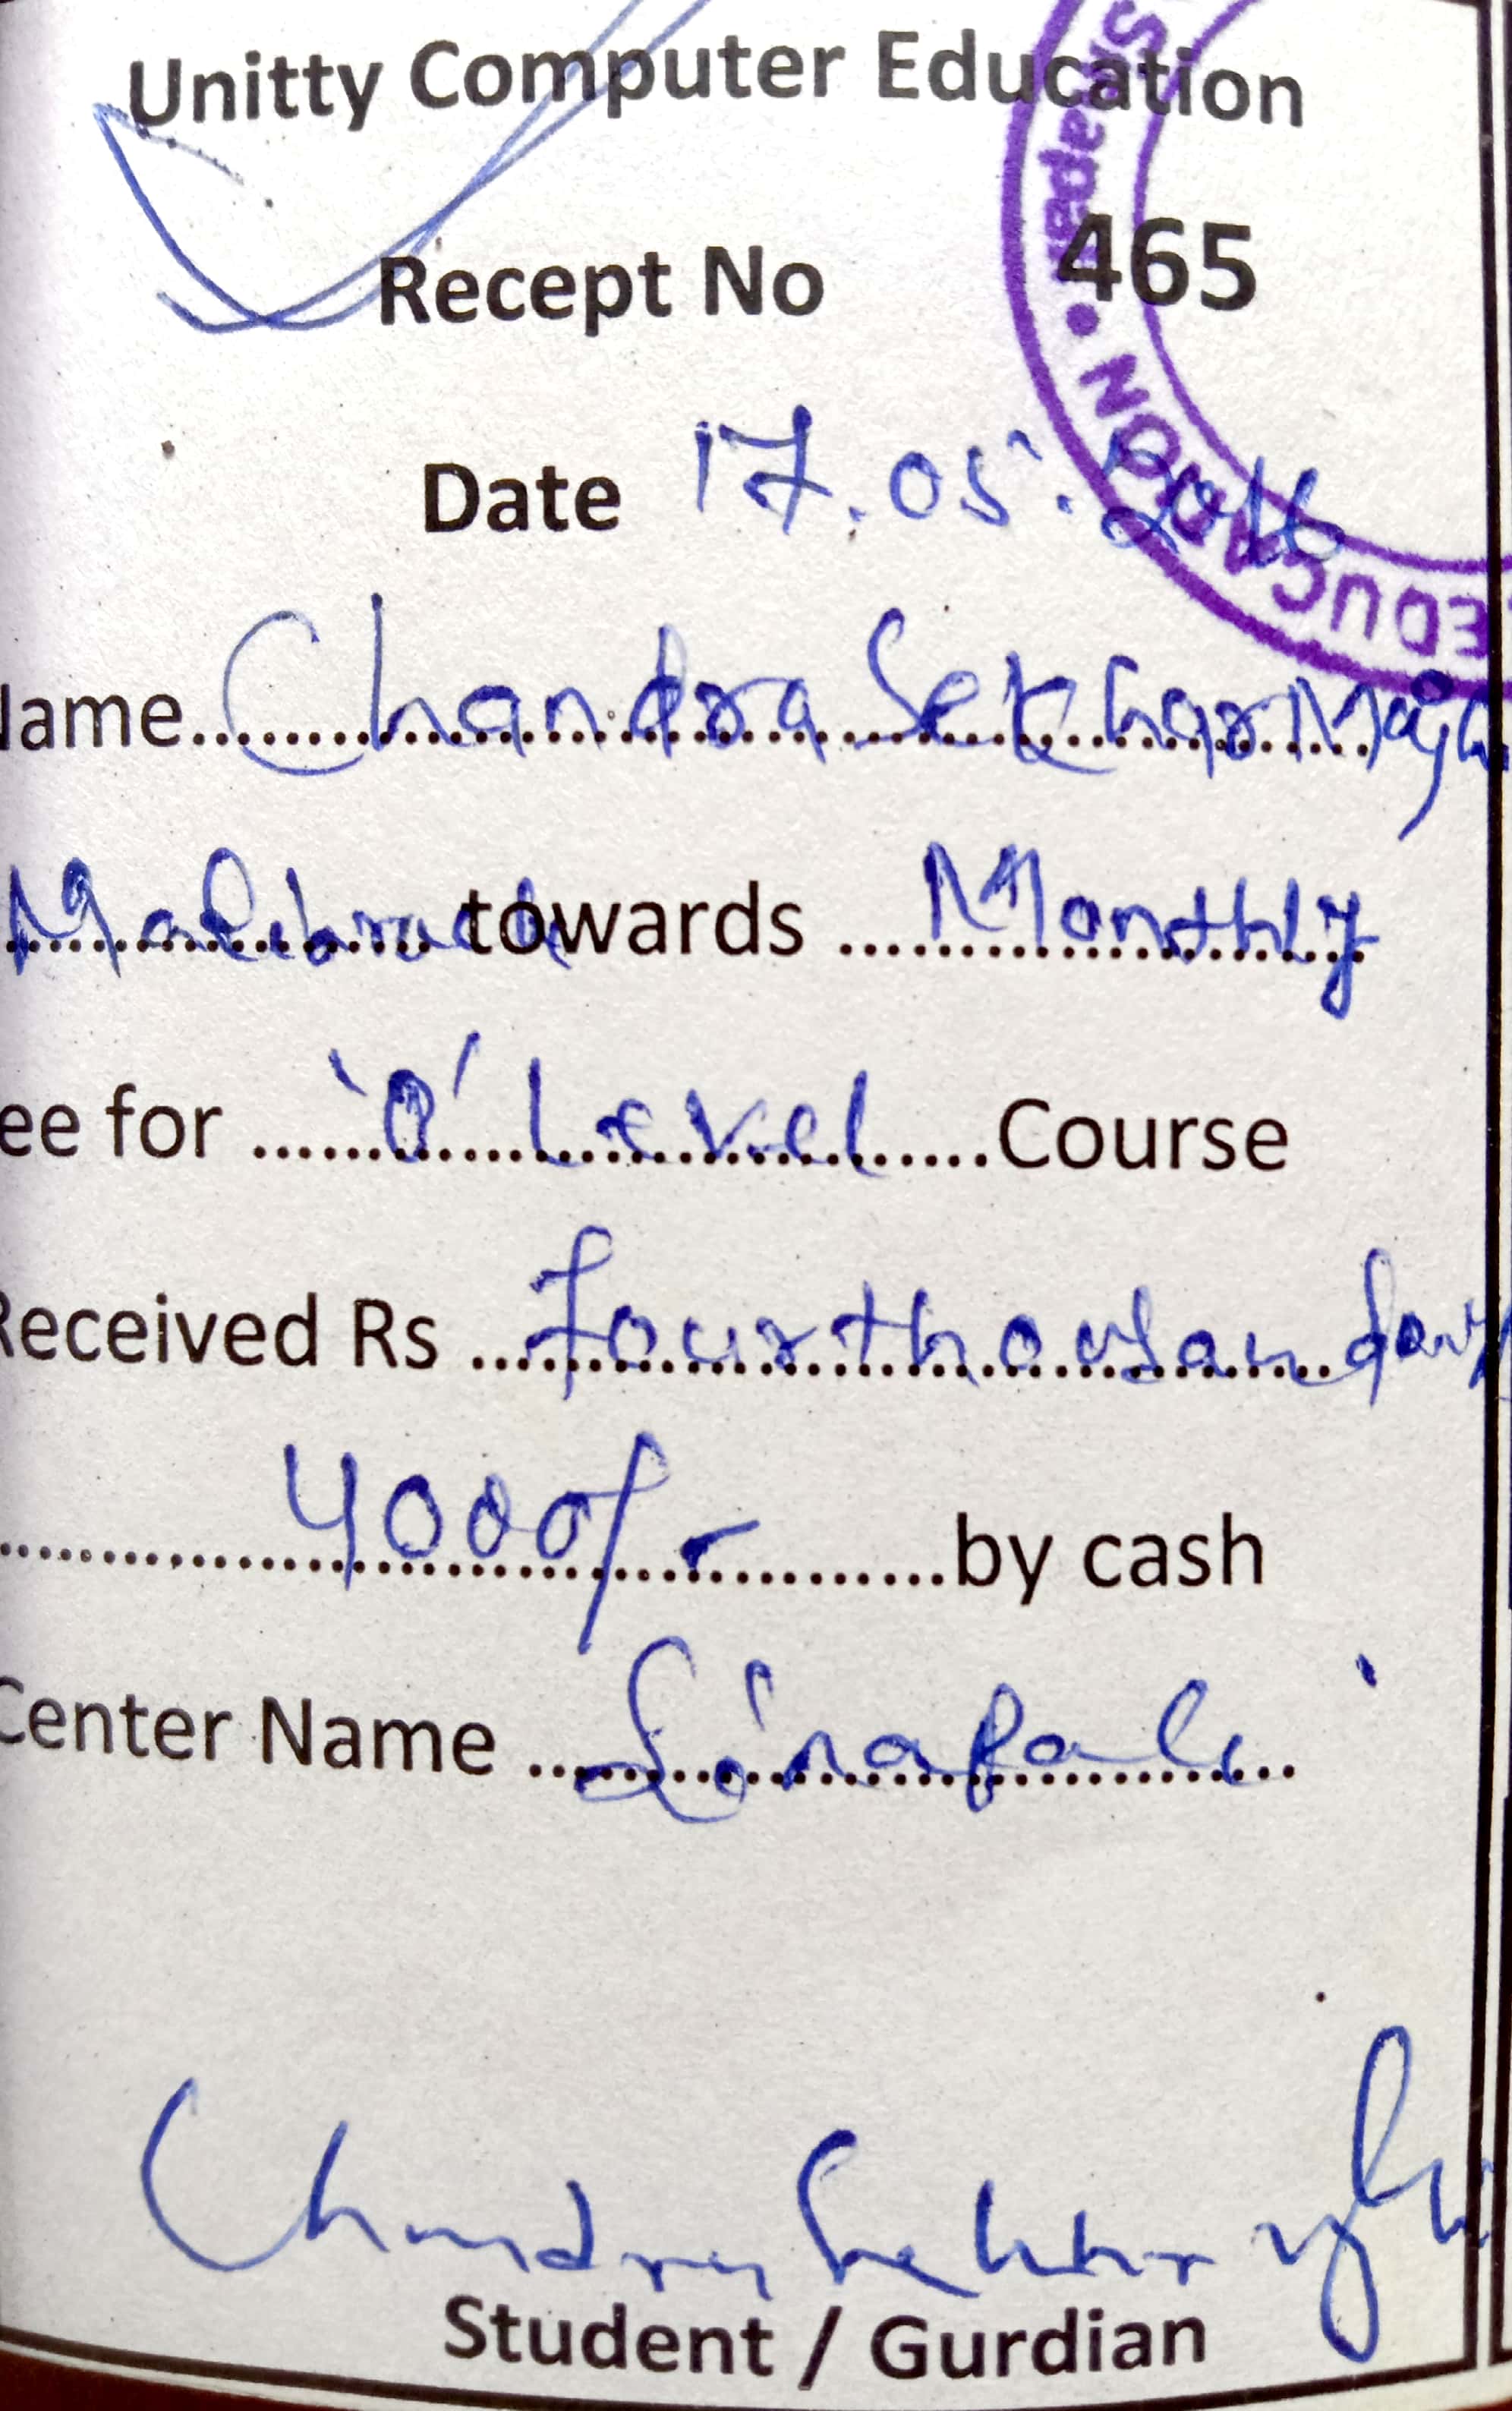 Unitty Computer Education
Recept No 465
Date 17.05.2016
Name Chandra Sekhar Majhi
towards Monthly
ee for 'O' Level Course
Received Rs Fourthousand only
4000/- by cash
Center Name Sinapali
EDUCATION
Chandra Sekhar Majhi
Student / Gurdian